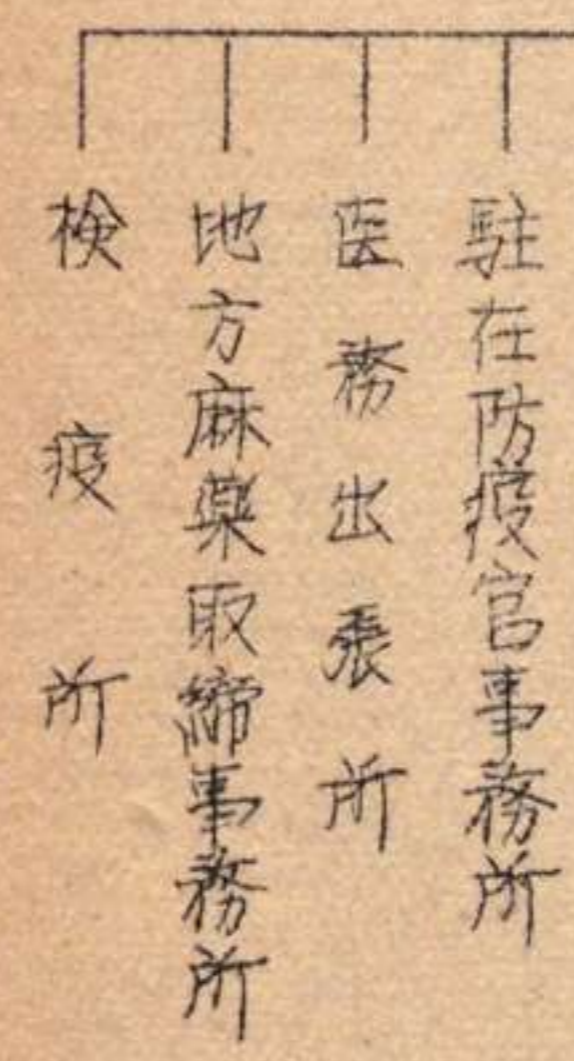 駐在防疫官事務所
医務出張所
地方麻薬取締事務所
検疫所